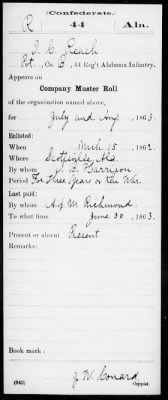 Confederate.
R 44 Ala.
J. C. Reach
Pvt, Co. B, 44 Reg't Alabama Infantry.
Appears on
Company Muster Roll
of the organization named above,
for July and Aug, 1863.
Enlisted:
When Mch 15, 1862.
Where Ala.
By whom T. B. Harrison
Period For three Years or the War
Last paid:
By whom A. J. M. Richmond
To what time June 30, 1863.
Present or absent Present
Remarks:
Book mark:
J. W. Conard
(642) Copyist.